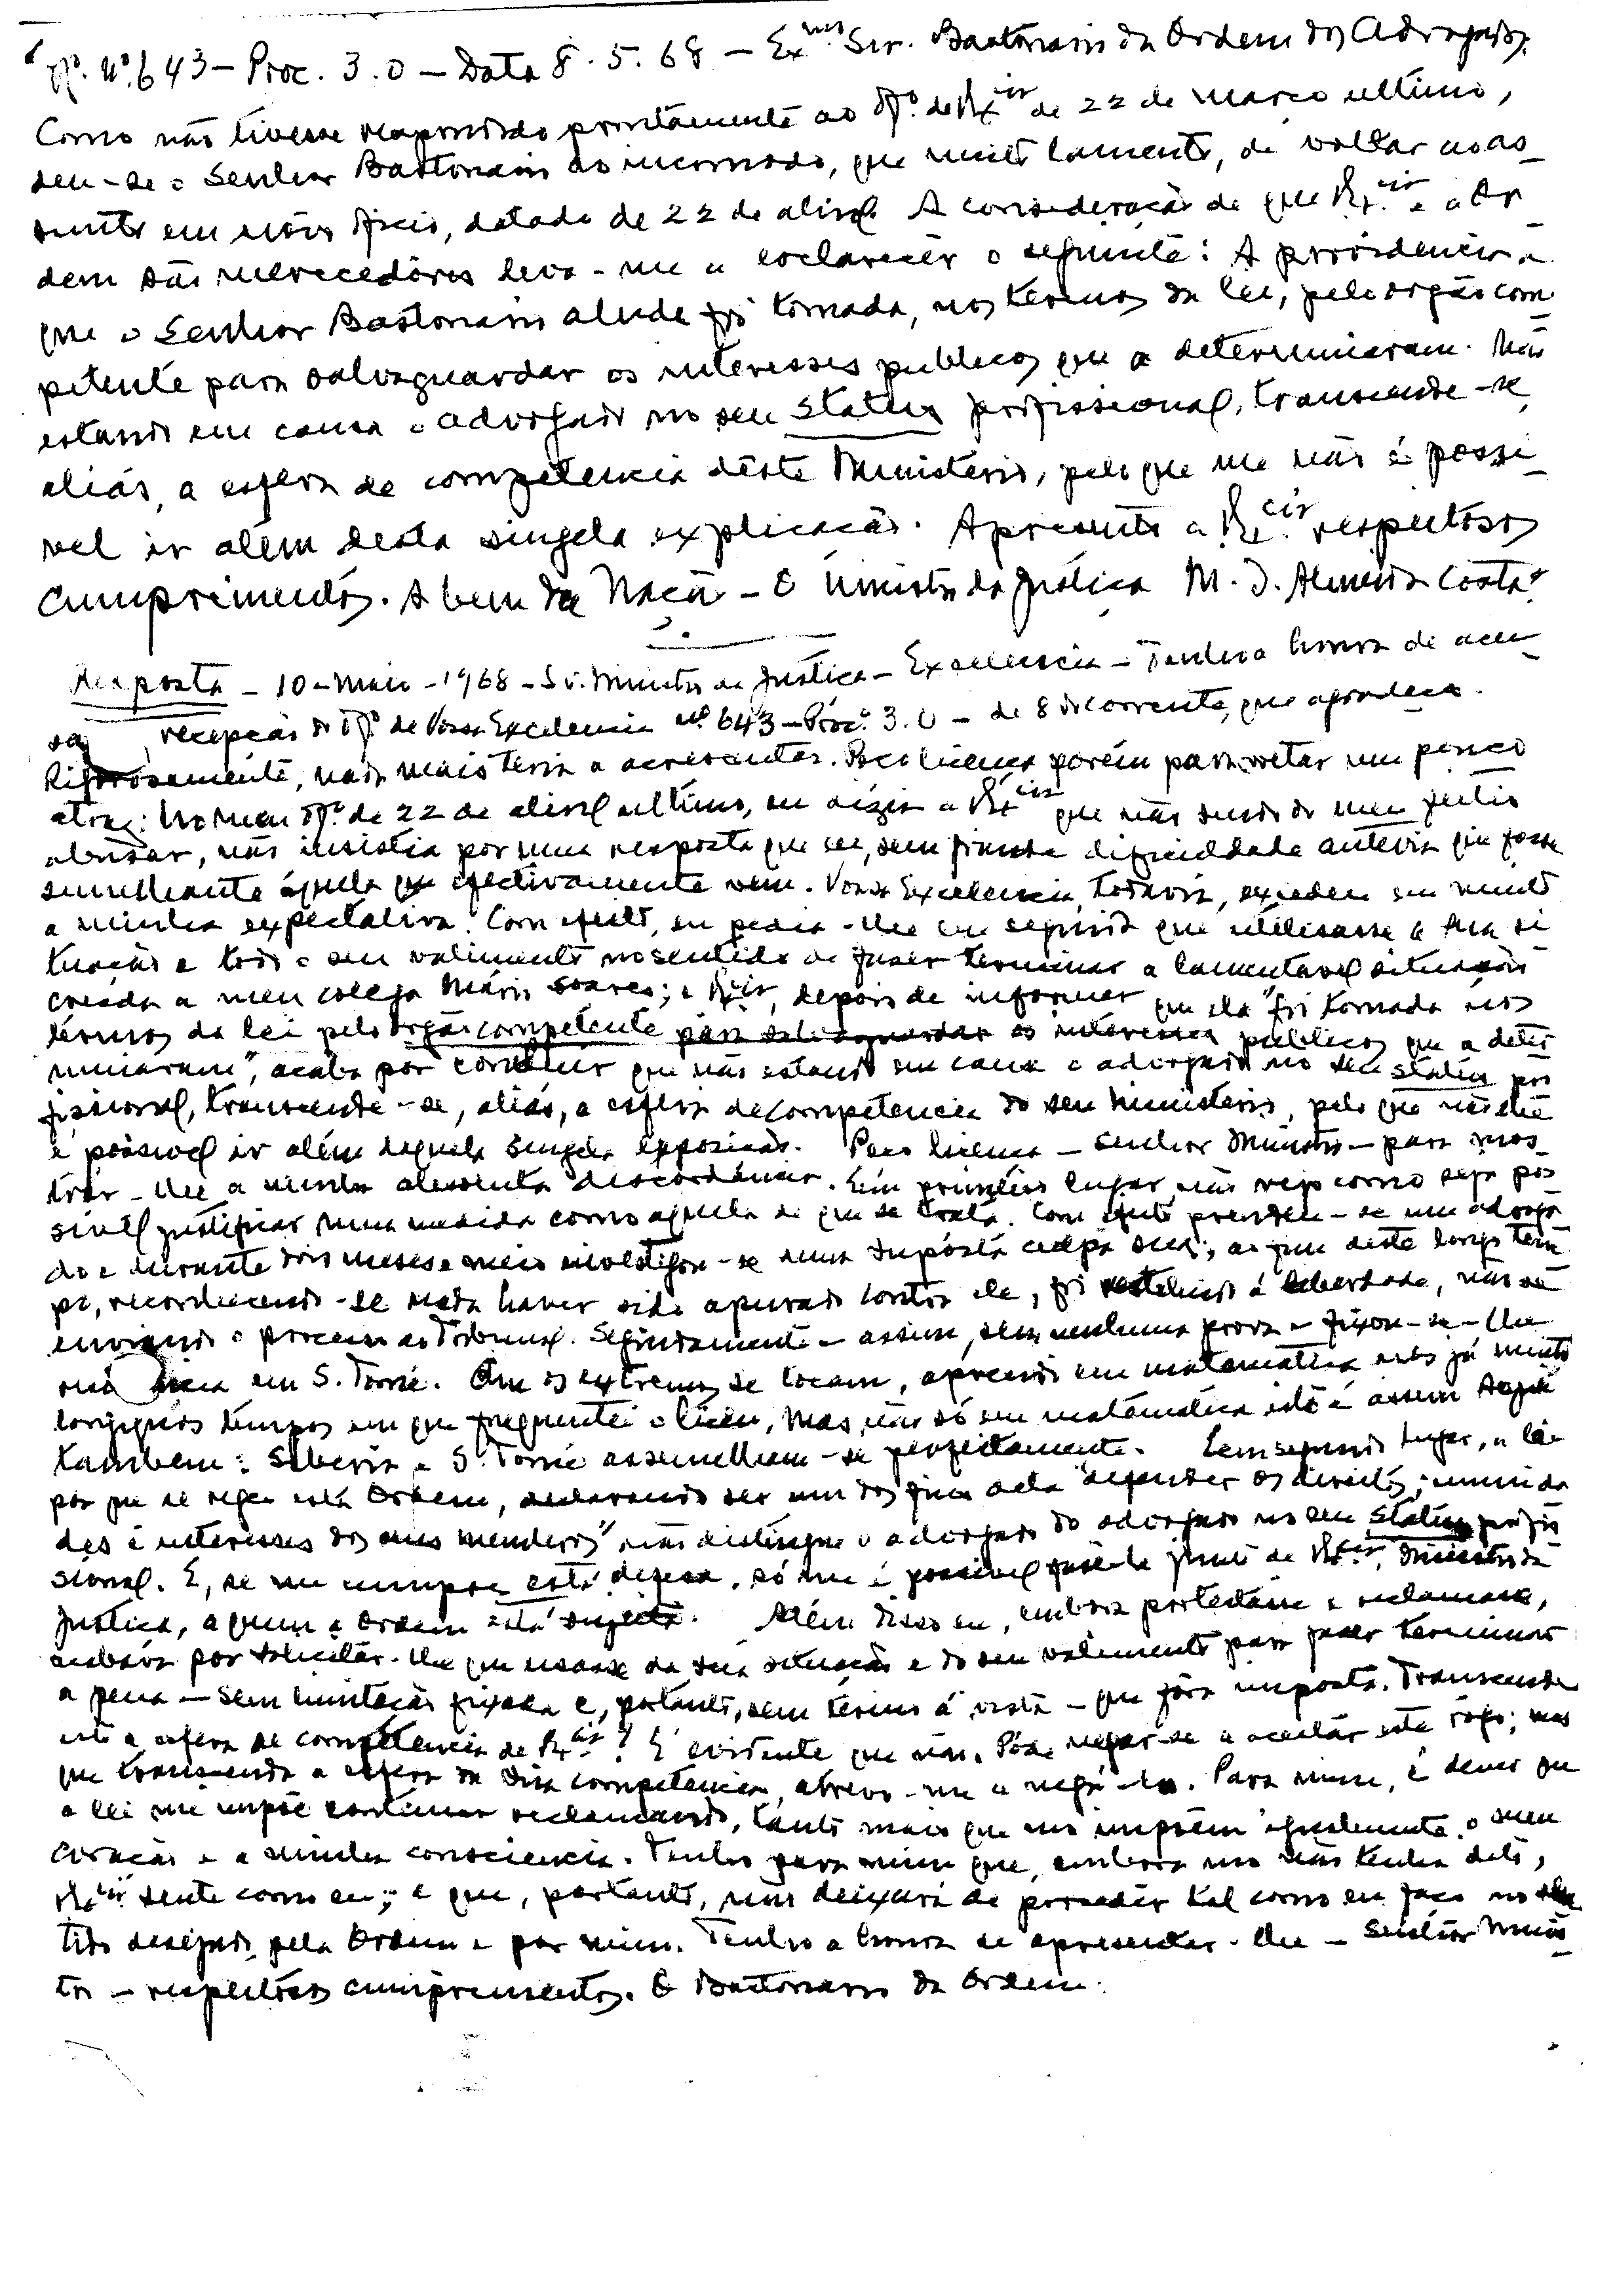 Of.º n.º 643 — Proc. 3.0 — Data 8.5.68 — Ex.mo Snr. Bastonario da Ordem dos Advogados.
Como não tivesse respondido prontamente ao Of.º de V. Ex.cia de 22 de março ultimo,
deu-se o Senhor Bastonario ao incomodo, que muito lamento, de voltar ao as_
sunto em novo oficio, datado de 22 de abril. A consideração de que V. Ex.cia e a Or_
dem são merecedores leva-me a esclarecer o seguinte: A providencia a
que o Senhor Bastonario alude foi tomada, nos termos da lei, pelo orgão com_
petente para salvaguardar os interesses publicos que a determinaram. Não
estando em causa o advogado no seu status profissional, transcende-se,
aliás, a esfera de competencia dêste Ministerio, pelo que me não é possi_
vel ir além desta singela explicação. Apresento a V. Ex.cia respeitosos
cumprimentos. A bem da Nação — O Ministro da Justiça M. J. Almeida Costa"
Resposta — 10-Maio-1968 — Sr. Ministro da Justiça — Excelencia — Tenho a honra de acu_
sar recepção do Of.º de Vossa Excelencia nº 643 — Proc.º 3.0 — de 8 do corrente, que agradeço.
Rigorosamente, nada mais teria a acrescentar. Peço licença porém para voltar um pouco
atraz: No meu Of.º de 22 de abril ultimo, eu dizia a V. Ex.cia que não sendo do meu feitio
abusar, não insistia por uma resposta que eu, sem grande dificuldade antevia que fosse
semelhante áquela que efectivamente veio. Vossa Excelencia, todavia, excedeu em muito
a minha expectativa. Com efeito, eu pedia-lhe em seguida que utilisasse a sua si
tuação e todo o seu valimento no sentido de fazer terminar a lamentavel situação
creada a meu colega Mário Soares; e V. Ex.cia, depois de informar que ela "foi tomada nos
termos da lei pelo orgão competente para salvaguardar os interesses publicos que a deter
minaram", acaba por concluir que não estando em causa o advogado no seu status pro
fissional, transcende-se, aliás, a esfera de competencia do seu Ministerio, pelo que não lhe
é possivel ir além daquela singela exposição. Peço licença — Senhor Ministro — para mos
trar-lhe a minha absoluta discordancia. Em primeiro lugar, não vejo como seja pos
sivel justificar uma medida como aquela de que se trata. Com efeito prendeu-se um advoga
do e durante dois meses e meio investigou-se uma suposta culpa sua; ao fim deste longo tem
po, reconhecendo-se nada haver sido apurado contra ele, foi restituido á liberdade, não se
enviando o processo ao Tribunal. Seguidamente — assim, sem nenhuma prova — fixou-se-lhe
residencia em S. Tomé. Que os extremos se tocam, aprendi em matematica nos já muito
longiquos tempos em que frequentei o liceu, mas não só em matematica isto é assim. Aqui
tambem: Siberia e S. Tomé assemelham-se perfeitamente. Em segundo lugar, a lei
por que se rege esta Ordem, declarando ser um dos fins dela "defender os direitos, imunida
des e interesses dos seus membros" não distingue o advogado do advogado no seu status profis
sional. E, se me cumpre esta defesa, só me é possivel fazê-la junto de V. Ex.cia, Ministro da
Justiça, a quem a Ordem está sujeita. Além disso eu, embora protestasse e reclamasse,
acabava por solicitar-lhe que usasse da sua situação e do seu valimento para fazer terminar
a pena — sem limitação fixada e, portanto, sem termo á vista — que fôra imposta. Transcende
isto a esfera de competencia de V. Ex.cia? É evidente que não. Póde negar-se a aceitar este rogo; mas
que transcenda a esfera da sua competencia, atrevo-me a negá-lo. Para mim, é dever que
a lei me impõe continuar reclamando, tanto mais que mo impõem igualmente o meu
coração e a minha consciencia. Tenho para mim que, embora mo não tenha dito,
V. Ex.cia sente como eu; e que, portanto, não deixará de proceder tal como eu faço no sen
tido desejado pela Ordem e por mim. Tenho a honra de apresentar-lhe — Senhor Minis_
tro — respeitosos cumprimentos. O Bastonario da Ordem.